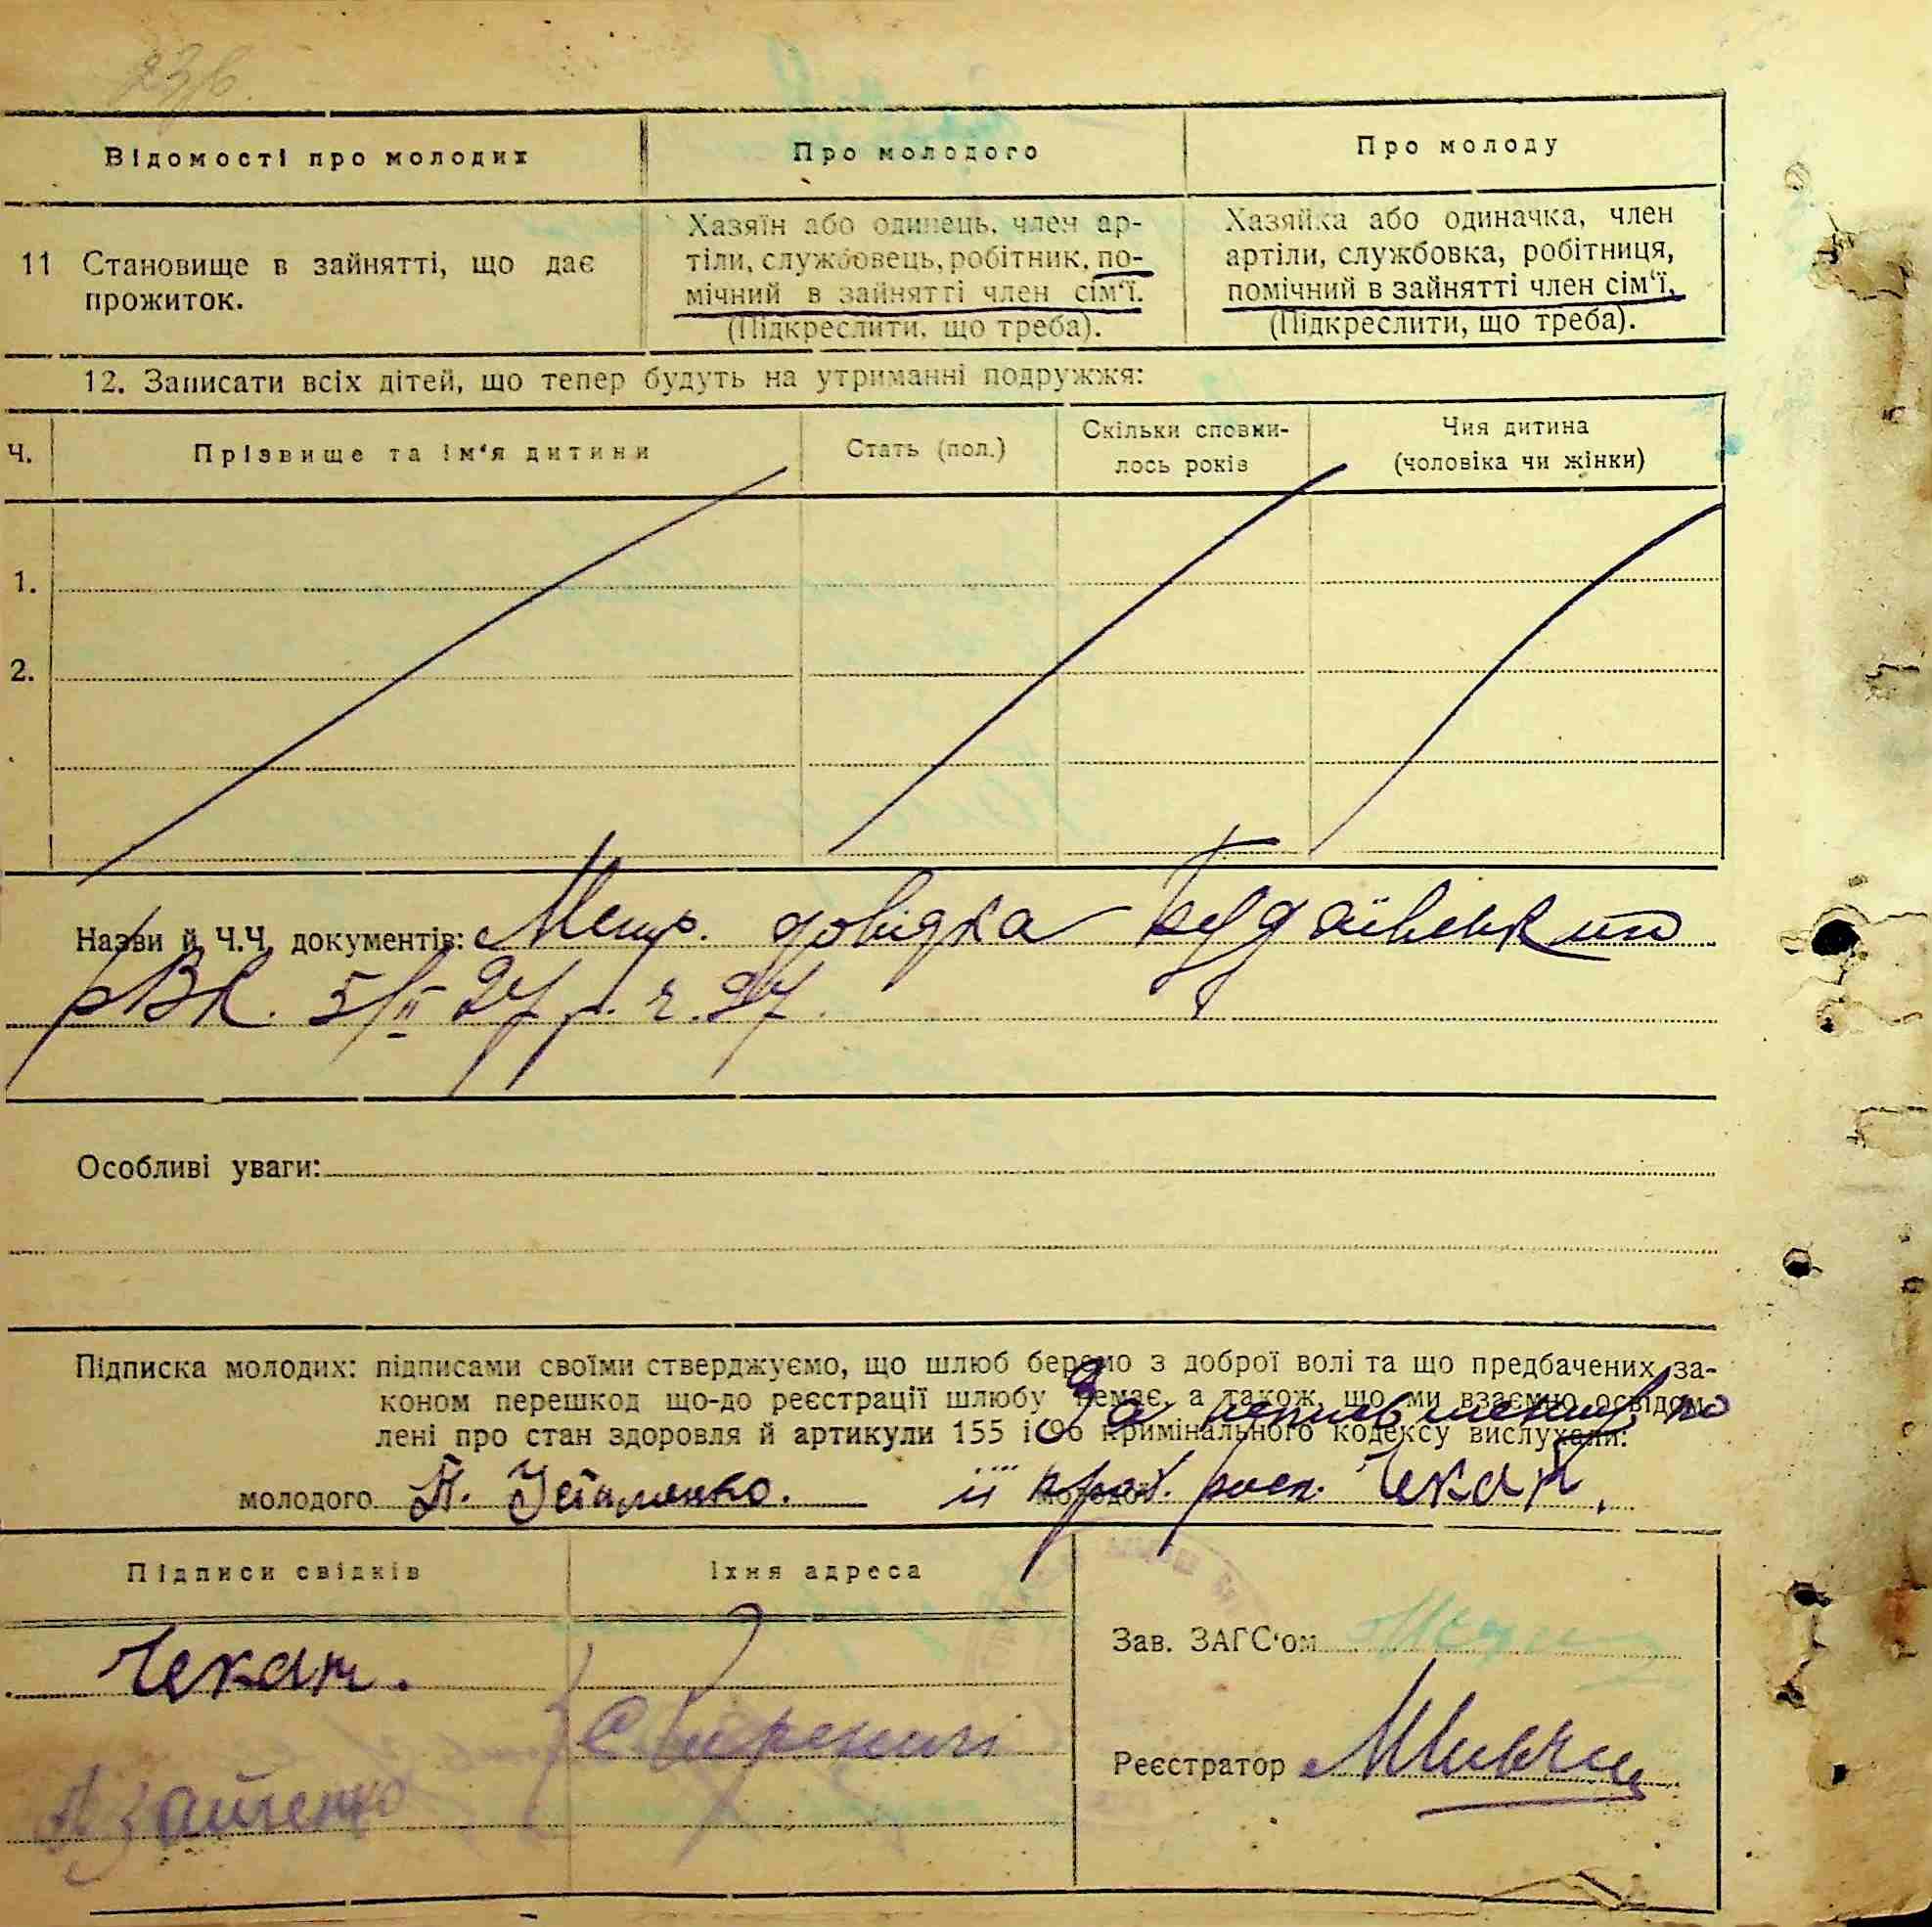 Відомості про молодих
Про молодого
Про молоду
11 Становище в зайнятті, що дає
прожиток.
Хазяїн або одинець, член ар-
тіли, службовець, робітник, по-
мічний в зайнятті член сім‘ї.
(Підкреслити, що треба).
Хазяйка або одиначка, член
артіли, службовка, робітниця,
помічний в зайнятті член сім‘ї,
(Підкреслити, що треба).
12. Записати всіх дітей, що тепер будуть на утриманні подружжя:
Ч.
Прізвище та ім‘я дитини
Стать (пол.)
Скільки сповни-
лось років
Чия дитина
(чоловіка чи жінки)
1.
2.
Назви й Ч.Ч. документів: Метр. довідка Будаївського
РВК. 5/II 27 р. ч. 97.
Особливі уваги:
Підписка молодих: підписами своїми стверджуємо, що шлюб беремо з доброї волі та що предбачених за-
коном перешкод що-до реєстрації шлюбу немає, а також, що ми взаємно освідом-
лені про стан здоровля й артикули 155 і 96 Кримінального кодексу вислухали:
За неписьменну по
молодого П. Устименко. її прох. росп. Чекан.
Підписи свідків
Їхня адреса
Чекан.
Зайченко
Зав. ЗАГС‘ом
Реєстратор